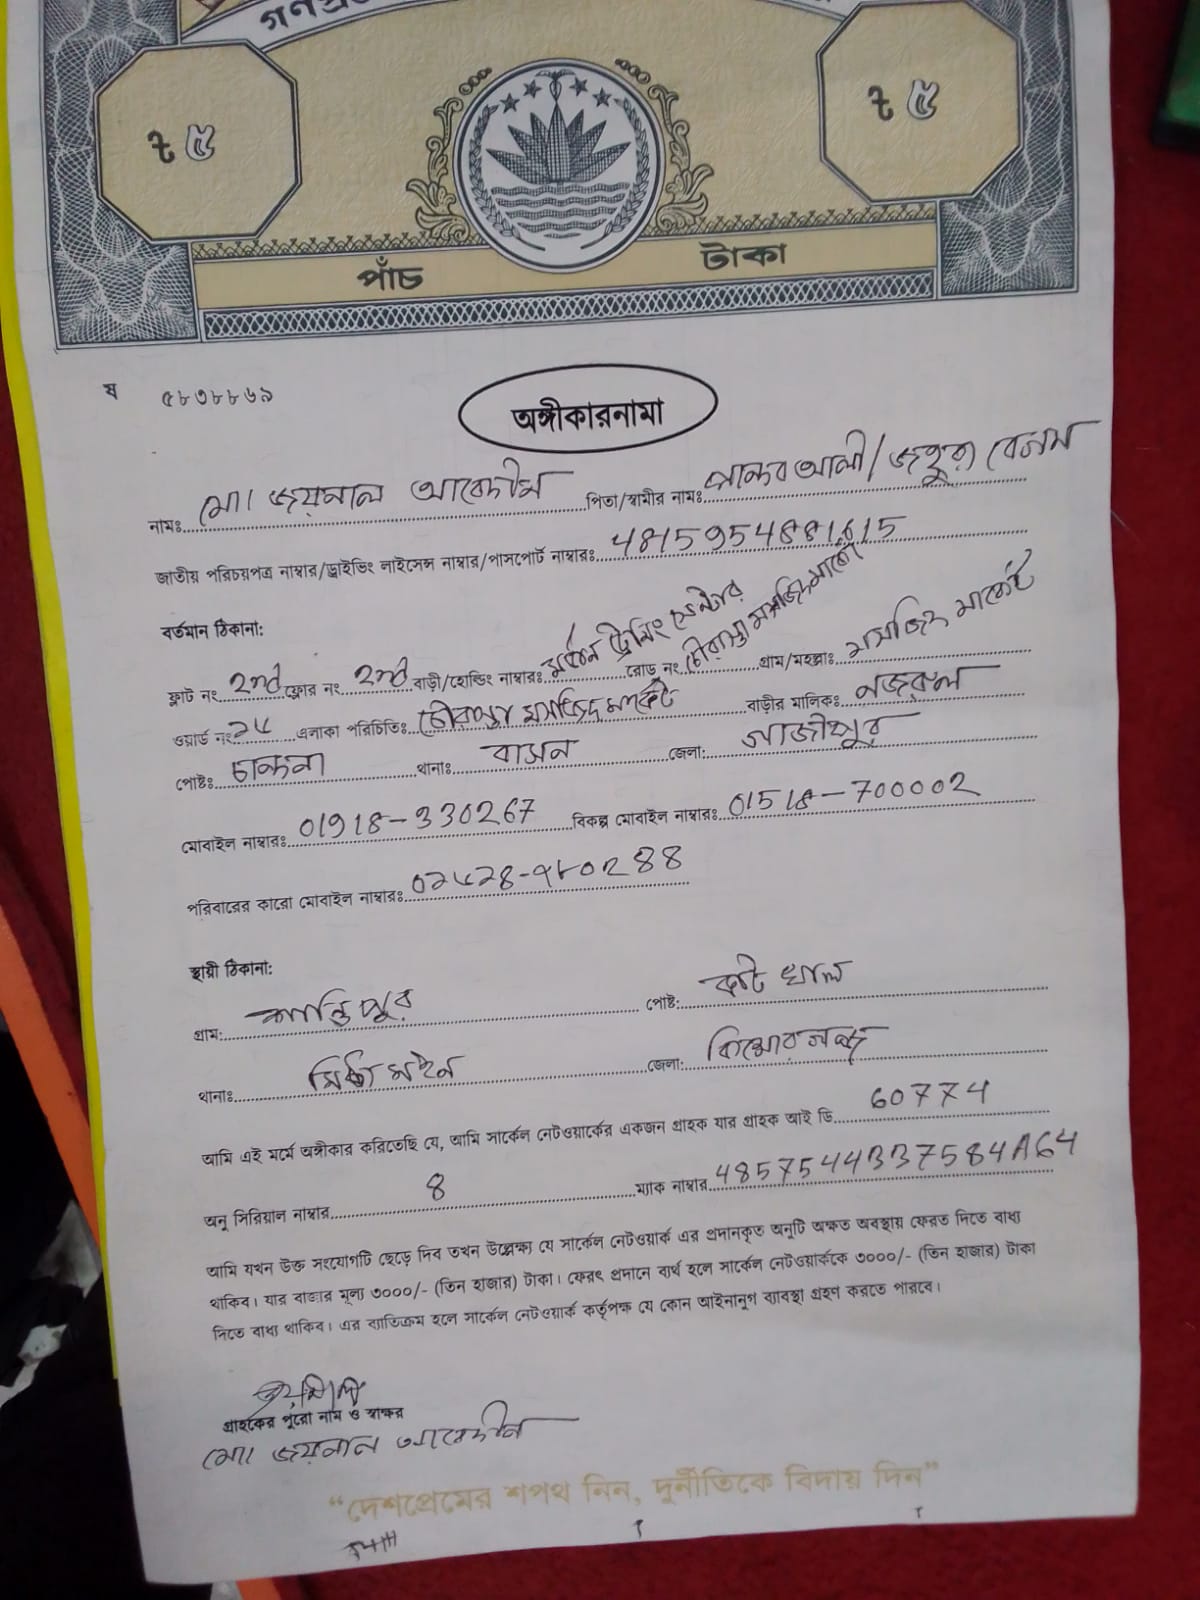 ৳ ৫
৳ ৫
পাঁচ টাকা
ষ ৫৮৩৮৮৬৯
অঙ্গীকারনামা
নামঃ মোঃ জয়নাল আবেদীন পিতা/স্বামীর নামঃ আলী/ জহুরা বেগম
জাতীয় পরিচয়পত্র নাম্বার/ড্রাইভিং লাইসেন্স নাম্বার/পাসপোর্ট নাম্বারঃ 4815954881615
বর্তমান ঠিকানা:
ফ্লাট নং 2nd ফ্লোর নং 2nd বাড়ী/হোল্ডিং নাম্বারঃ মর্ডান ট্রেনিং সেন্টার রোড নং চৌরাস্তা মসজিদ মার্কেট গ্রাম/মহল্লাঃ মসজিদ মার্কেট
ওয়ার্ড নং এলাকা পরিচিতিঃ চৌরাস্তা মসজিদ মার্কেট বাড়ীর মালিকঃ নজরুল
পোষ্টঃ চান্দনা থানাঃ বাসন জেলা: গাজীপুর
মোবাইল নাম্বারঃ 01918-330267 বিকল্প মোবাইল নাম্বারঃ 01518-700002
পরিবারের কারো মোবাইল নাম্বারঃ
স্থায়ী ঠিকানা:
গ্রাম: শান্তিপুর পোষ্ট: খাল
থানাঃ মিঠামইন জেলা: কিশোরগঞ্জ
আমি এই মর্মে অঙ্গীকার করিতেছি যে, আমি সার্কেল নেটওয়ার্কের একজন গ্রাহক যার গ্রাহক আই ডি 60774
অনু সিরিয়াল নাম্বার 8 ম্যাক নাম্বার 4857544337584A64
আমি যখন উক্ত সংযোগটি ছেড়ে দিব তখন উল্লেক্ষ্য যে সার্কেল নেটওয়ার্ক এর প্রদানকৃত অনুটি অক্ষত অবস্থায় ফেরত দিতে বাধ্য
থাকিব। যার বাজার মূল্য ৩০০০/- (তিন হাজার) টাকা। ফেরৎ প্রদানে ব্যর্থ হলে সার্কেল নেটওয়ার্ককে ৩০০০/- (তিন হাজার) টাকা
দিতে বাধ্য থাকিব। এর ব্যাতিক্রম হলে সার্কেল নেটওয়ার্ক কর্তৃপক্ষ যে কোন আইনানুগ ব্যাবস্থা গ্রহণ করতে পারবে।
গ্রাহকের পুরো নাম ও স্বাক্ষর
মোঃ জয়নাল আবেদীন
“দেশপ্রেমের শপথ নিন, দুর্নীতিকে বিদায় দিন”